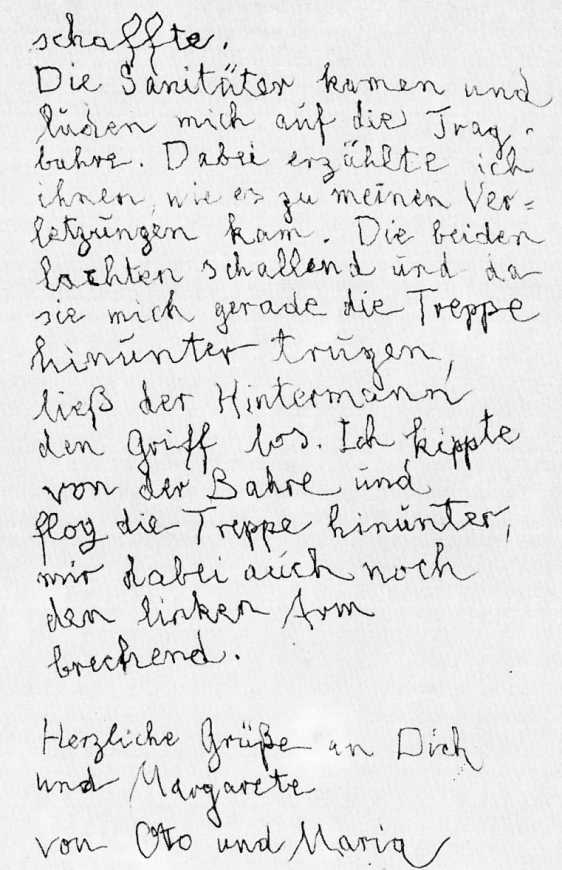 schaffte.
Die Sanitäter kamen und
luden mich auf die Trag-
bahre. Dabei erzählte ich
ihnen, wie es zu meinen Ver=
letzungen kam. Die beiden
lachten schallend und da
sie mich gerade die Treppe
hinunter trugen,
ließ der Hintermann
den Griff los. Ich kippte
von der Bahre und
flog die Treppe hinunter,
mir dabei auch noch
den linken Arm
brechend.
Herzliche Grüße an Dich
und Margarete
von Otto und Maria